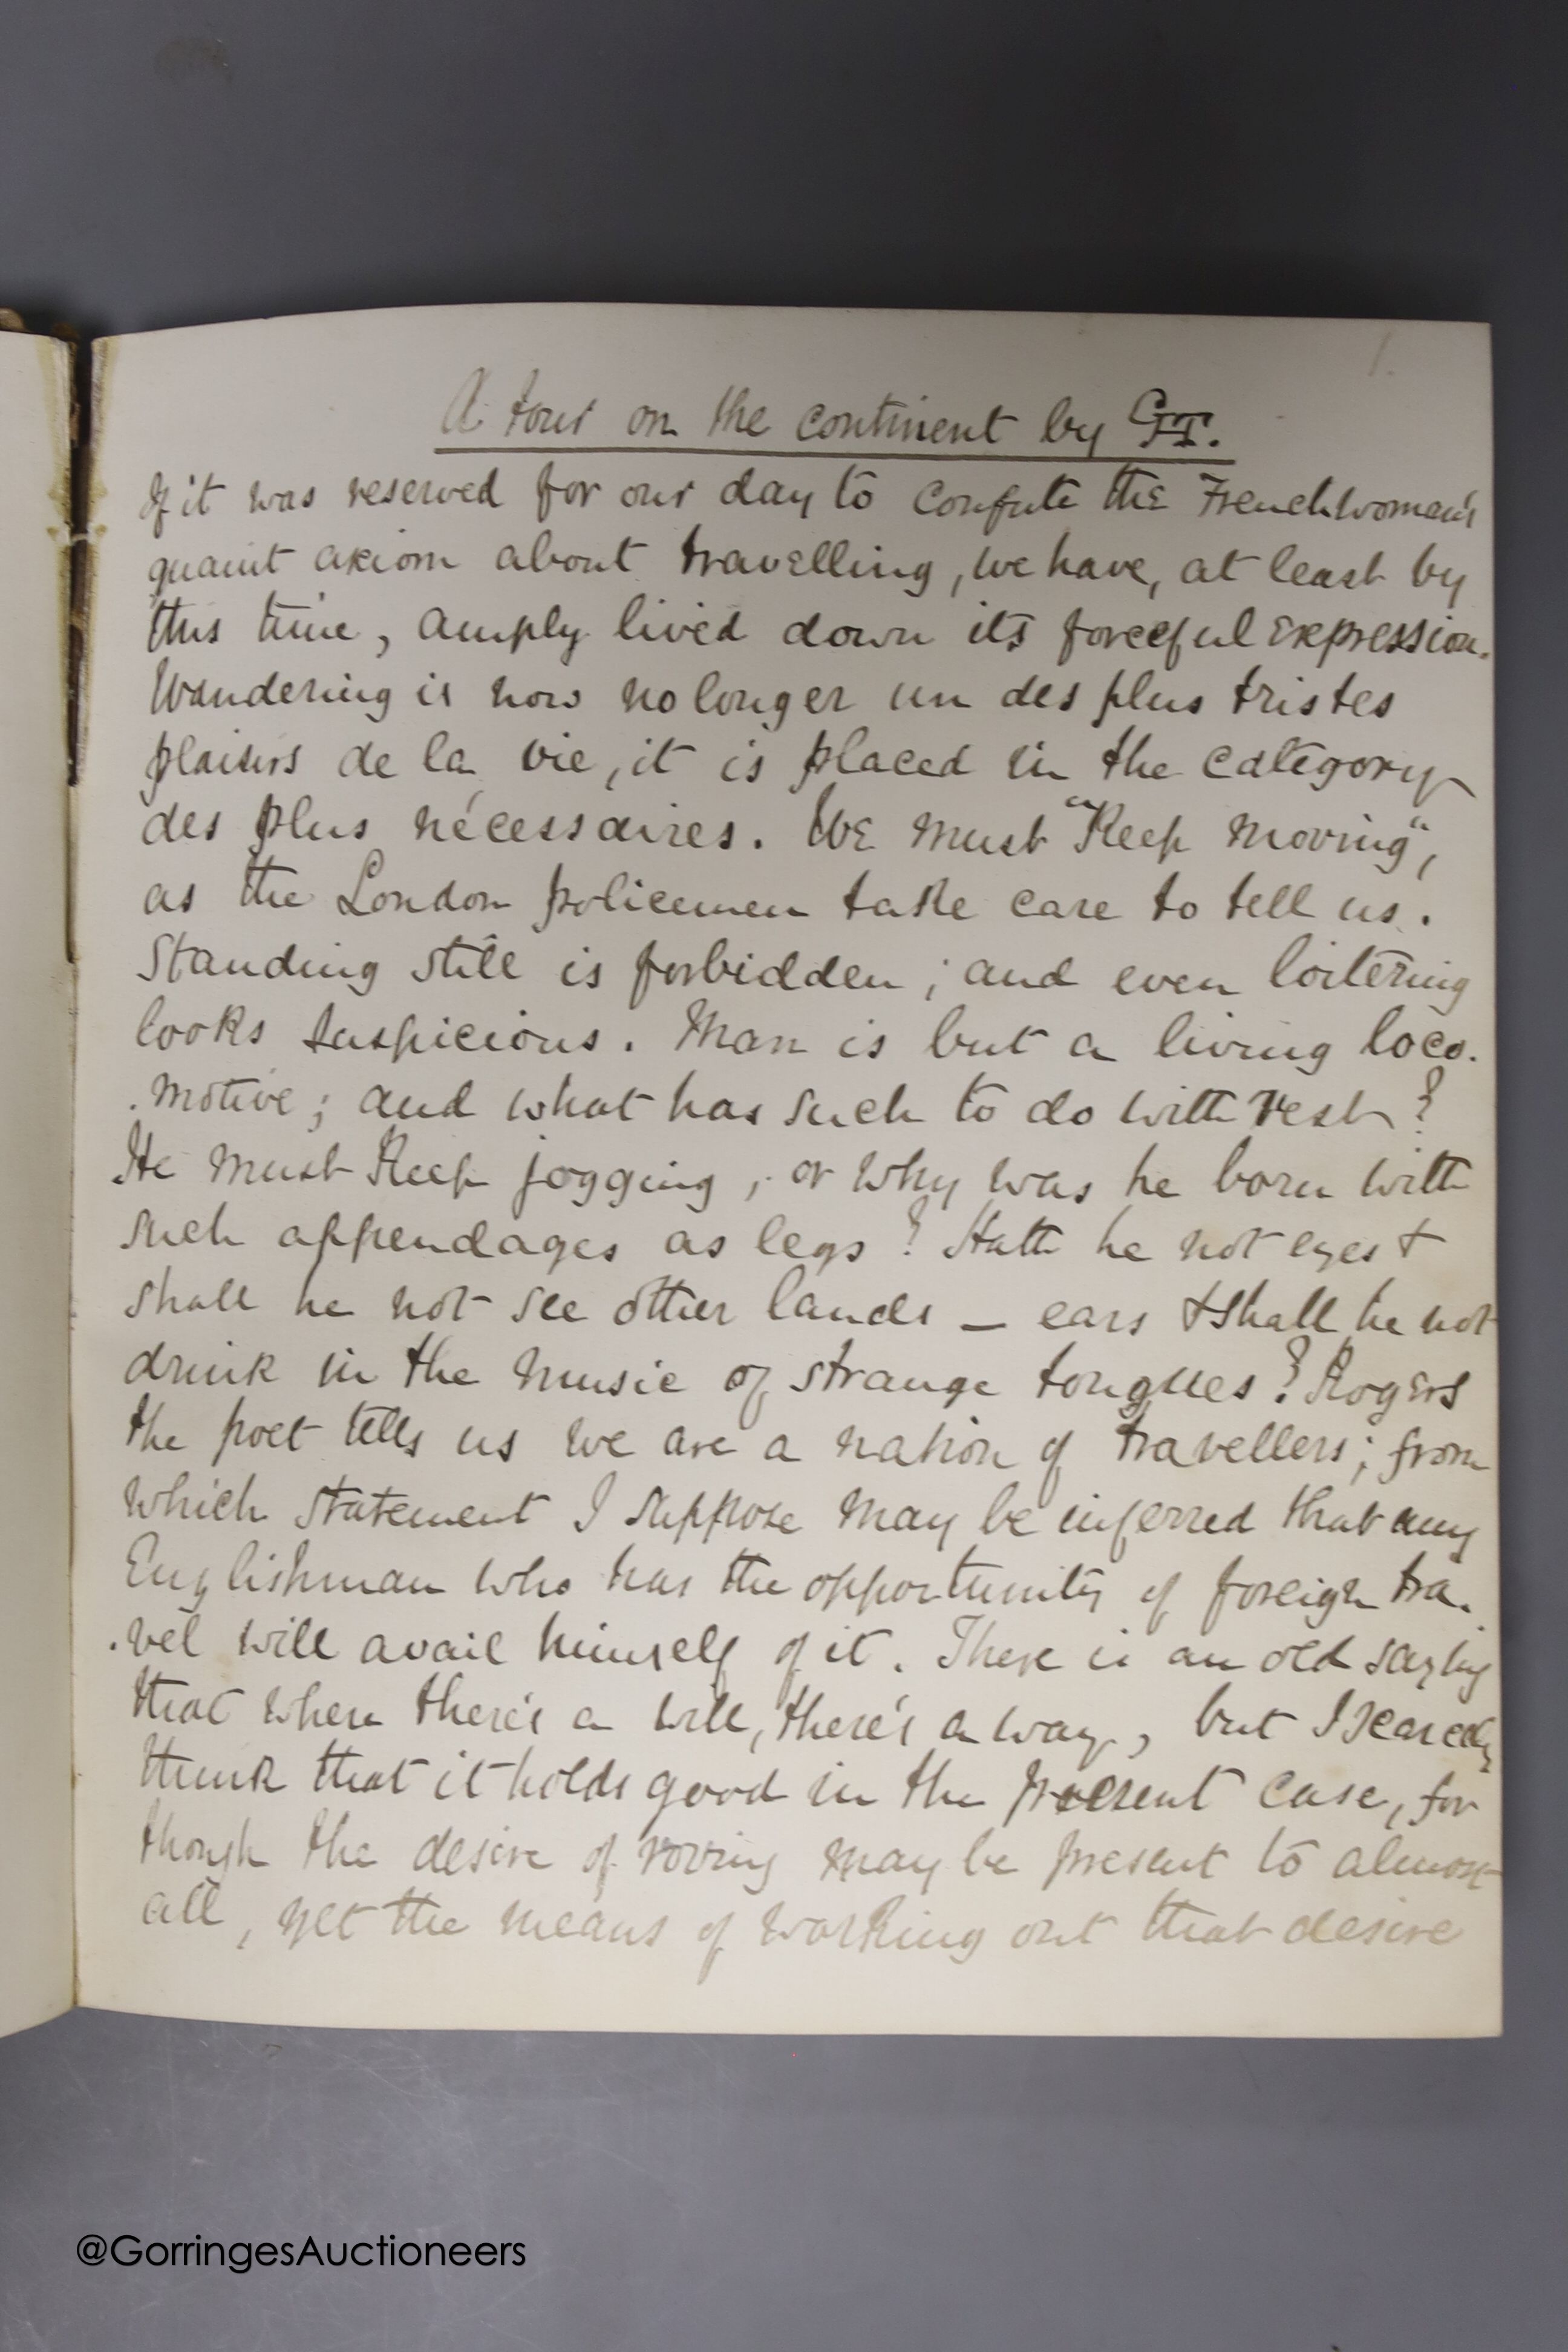 1.
A tour on the continent by G.T.
If it was reserved for our day to confute the Frenchwoman's
quaint axiom about travelling, we have, at least by
this time, amply lived down its forceful expression.
Wandering is now no longer un des plus tristes
plaisirs de la vie, it is placed in the category
des plus nécessaires. We must "Keep moving",
as the London policemen take care to tell us.
Standing still is forbidden; and even loitering
looks suspicious. Man is but a living loco.
.motive; and what has such to do with rest?
He must Keep jogging, or why was he born with
such appendages as legs? Hath he not eyes &
shall he not see other lands _ ears & shall he not
drink in the music of strange tongues? Rogers
the poet tells us we are a nation of travellers; from
which statement I suppose may be inferred that any
Englishman who has the opportunity of foreign tra.
.vel will avail himself of it. There is an old saying
that where there's a will, there's a way, but I scarcely
think that it holds good in the present case, for
though the desire of roving may be present to almost
all, yet the means of working out that desire
@GorringesAuctioneers